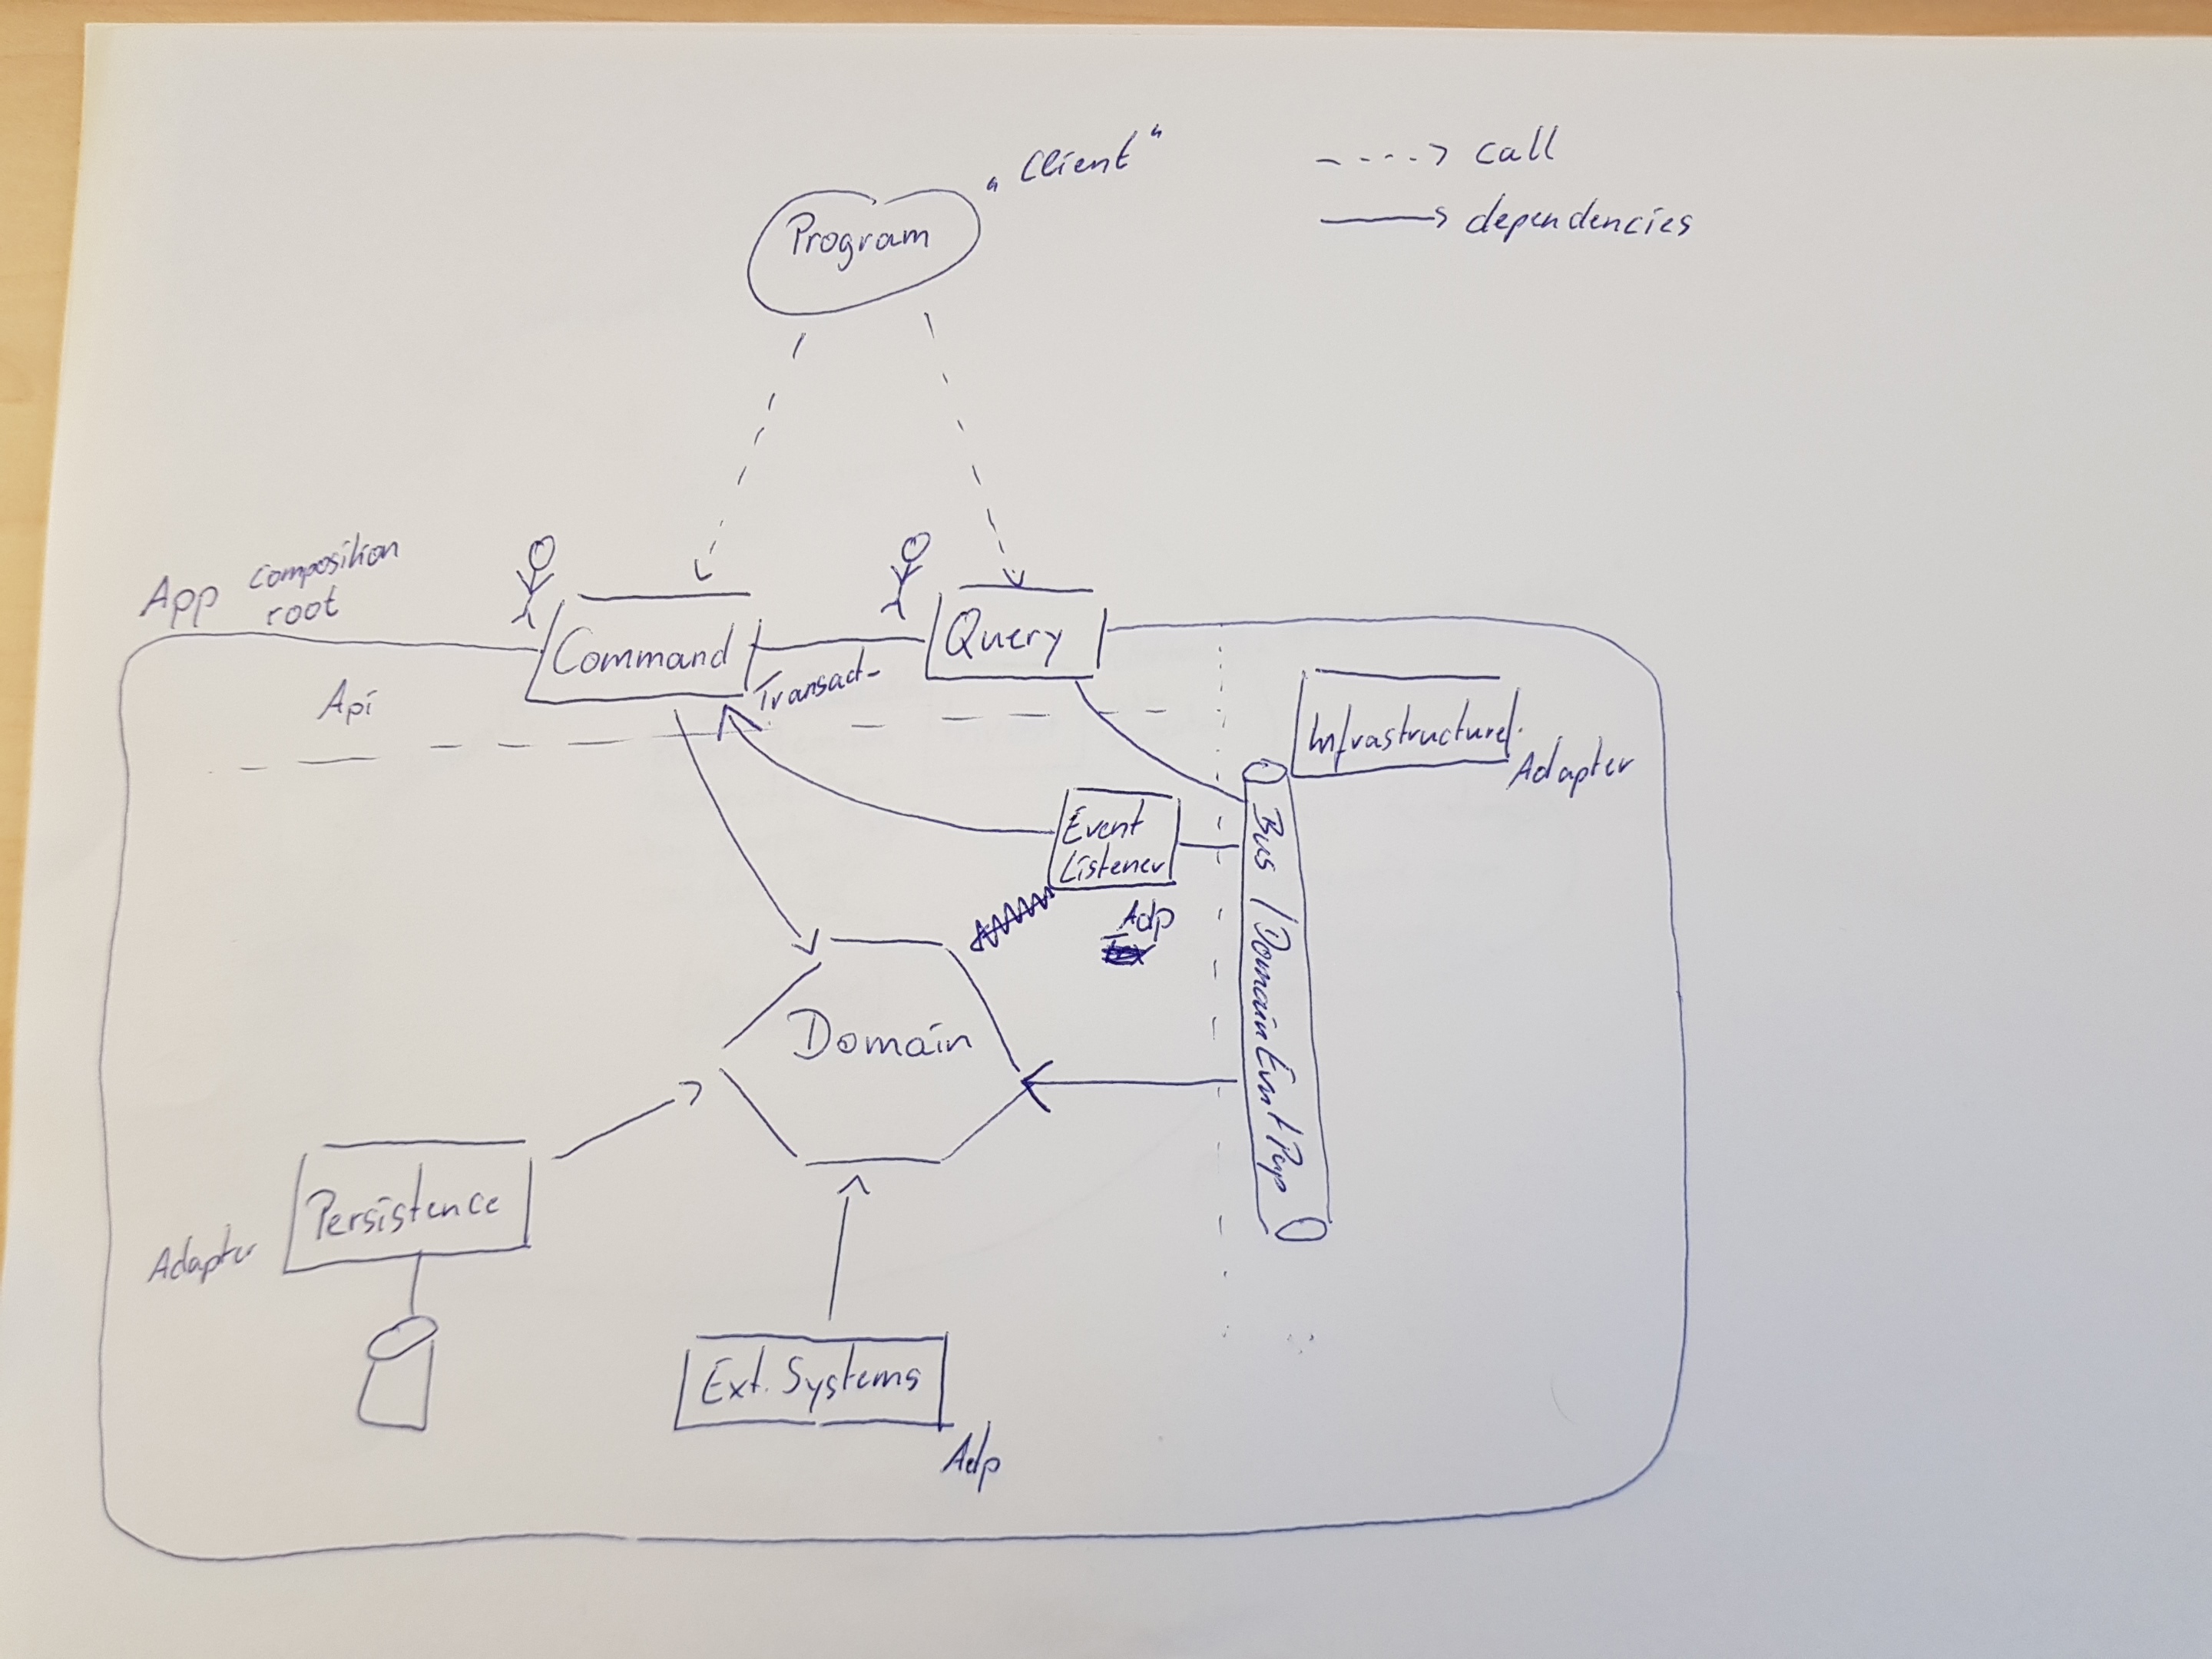 „Client"
Program
- - - -> call
—> dependencies
App composition
root
Command
Query
Transact-
Api
Infrastructure
Adapter
Event
Listener
Adp
Domain
Persistence
Adapter
Ext. Systems
Adp
Bus / Domain